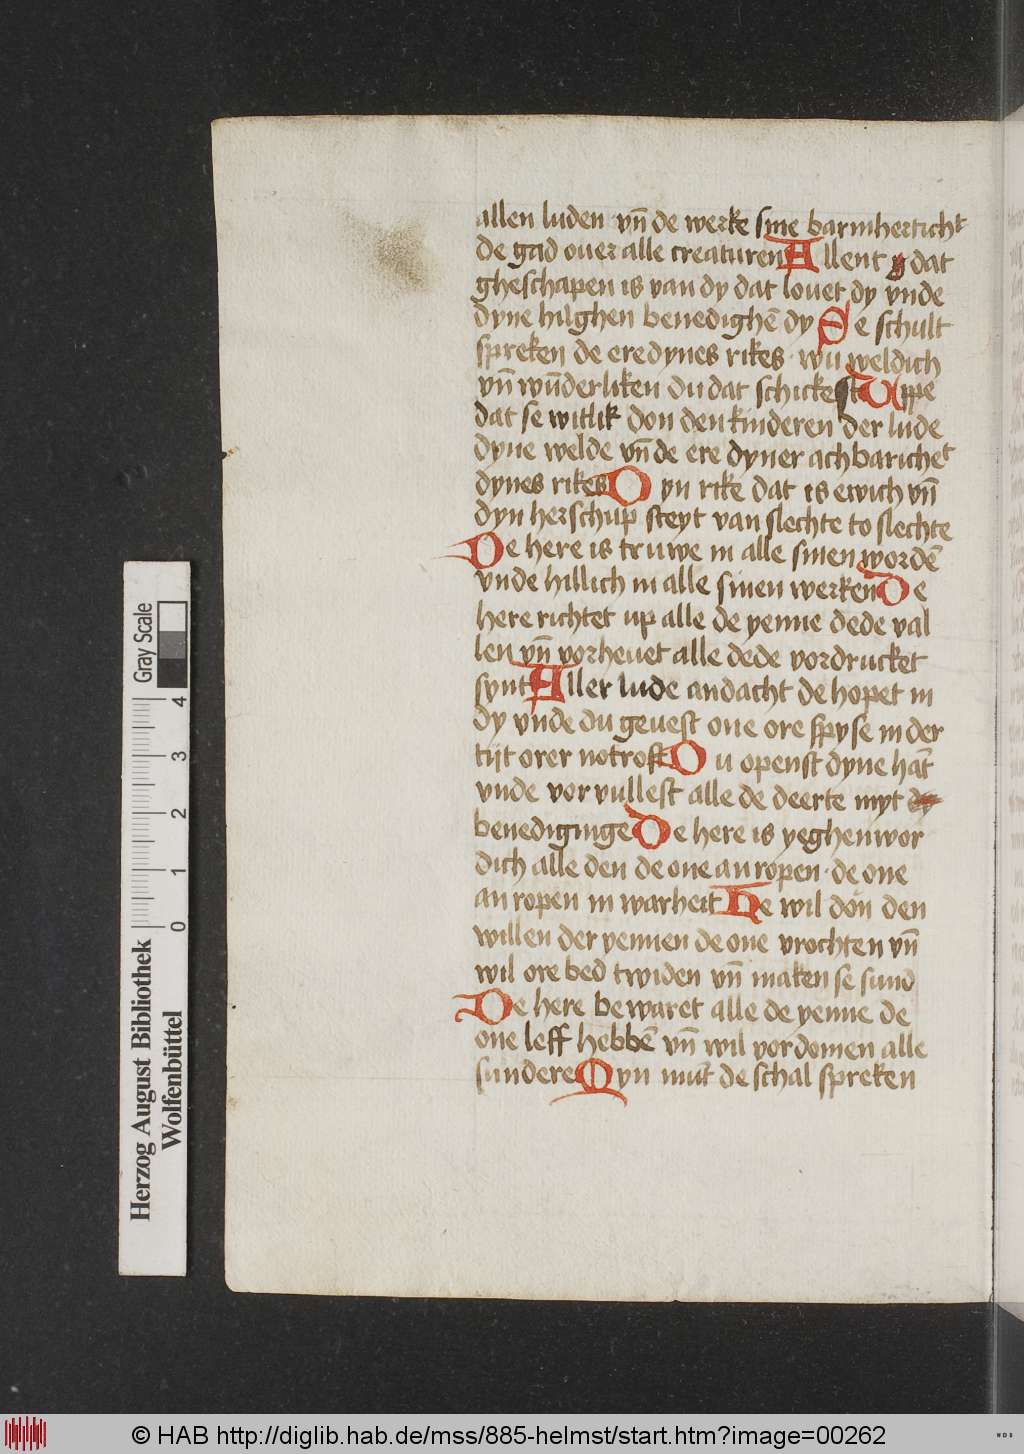 allen luden vn̄ de werke sine barmhertich^t
de gad ouer alle creaturen Allent dat
gheschapen is van dy dat louet dy vnde
dyne hilghen benedighē dy Se schult
spreken de ere dynes rikes · wu weldich
vn̄ wūderliken du dat schickest Uppe
dat se witlik don den kinderen der lude
dyne welde vn̄ de ere dyner achbariche^t
dynes rikes Dyn rike dat is ewich vn̄
dyn herschup steyt van slechte to slechte
De here is truwe in alle sinen wordē
vnde hillich in alle sinen werken De
here richtet up alle de yenne dede val
len vn̄ vorheuet alle dede vordrucket
synt Aller lude andacht de hopet in
dy vnde du geuest one ore spyse in der
tijt orer notroft Du openst dyne hāt
vnde vorvullest alle de deerte myt
benediginge De here is yeghenwor
dich alle den de one anropen · de one
anropen in warheit He wil don den
willen der yennen de one vrochten vn̄
wil ore bed twiden vn̄ maken se sund
De here bewaret alle de yenne de
one leff hebbē vn̄ wil vordomen alle
sundere Myn mūt de schal spreken
Herzog August Bibliothek
Wolfenbüttel
0 1 2 3 4
Gray Scale
© HAB http://diglib.hab.de/mss/885-helmst/start.htm?image=00262